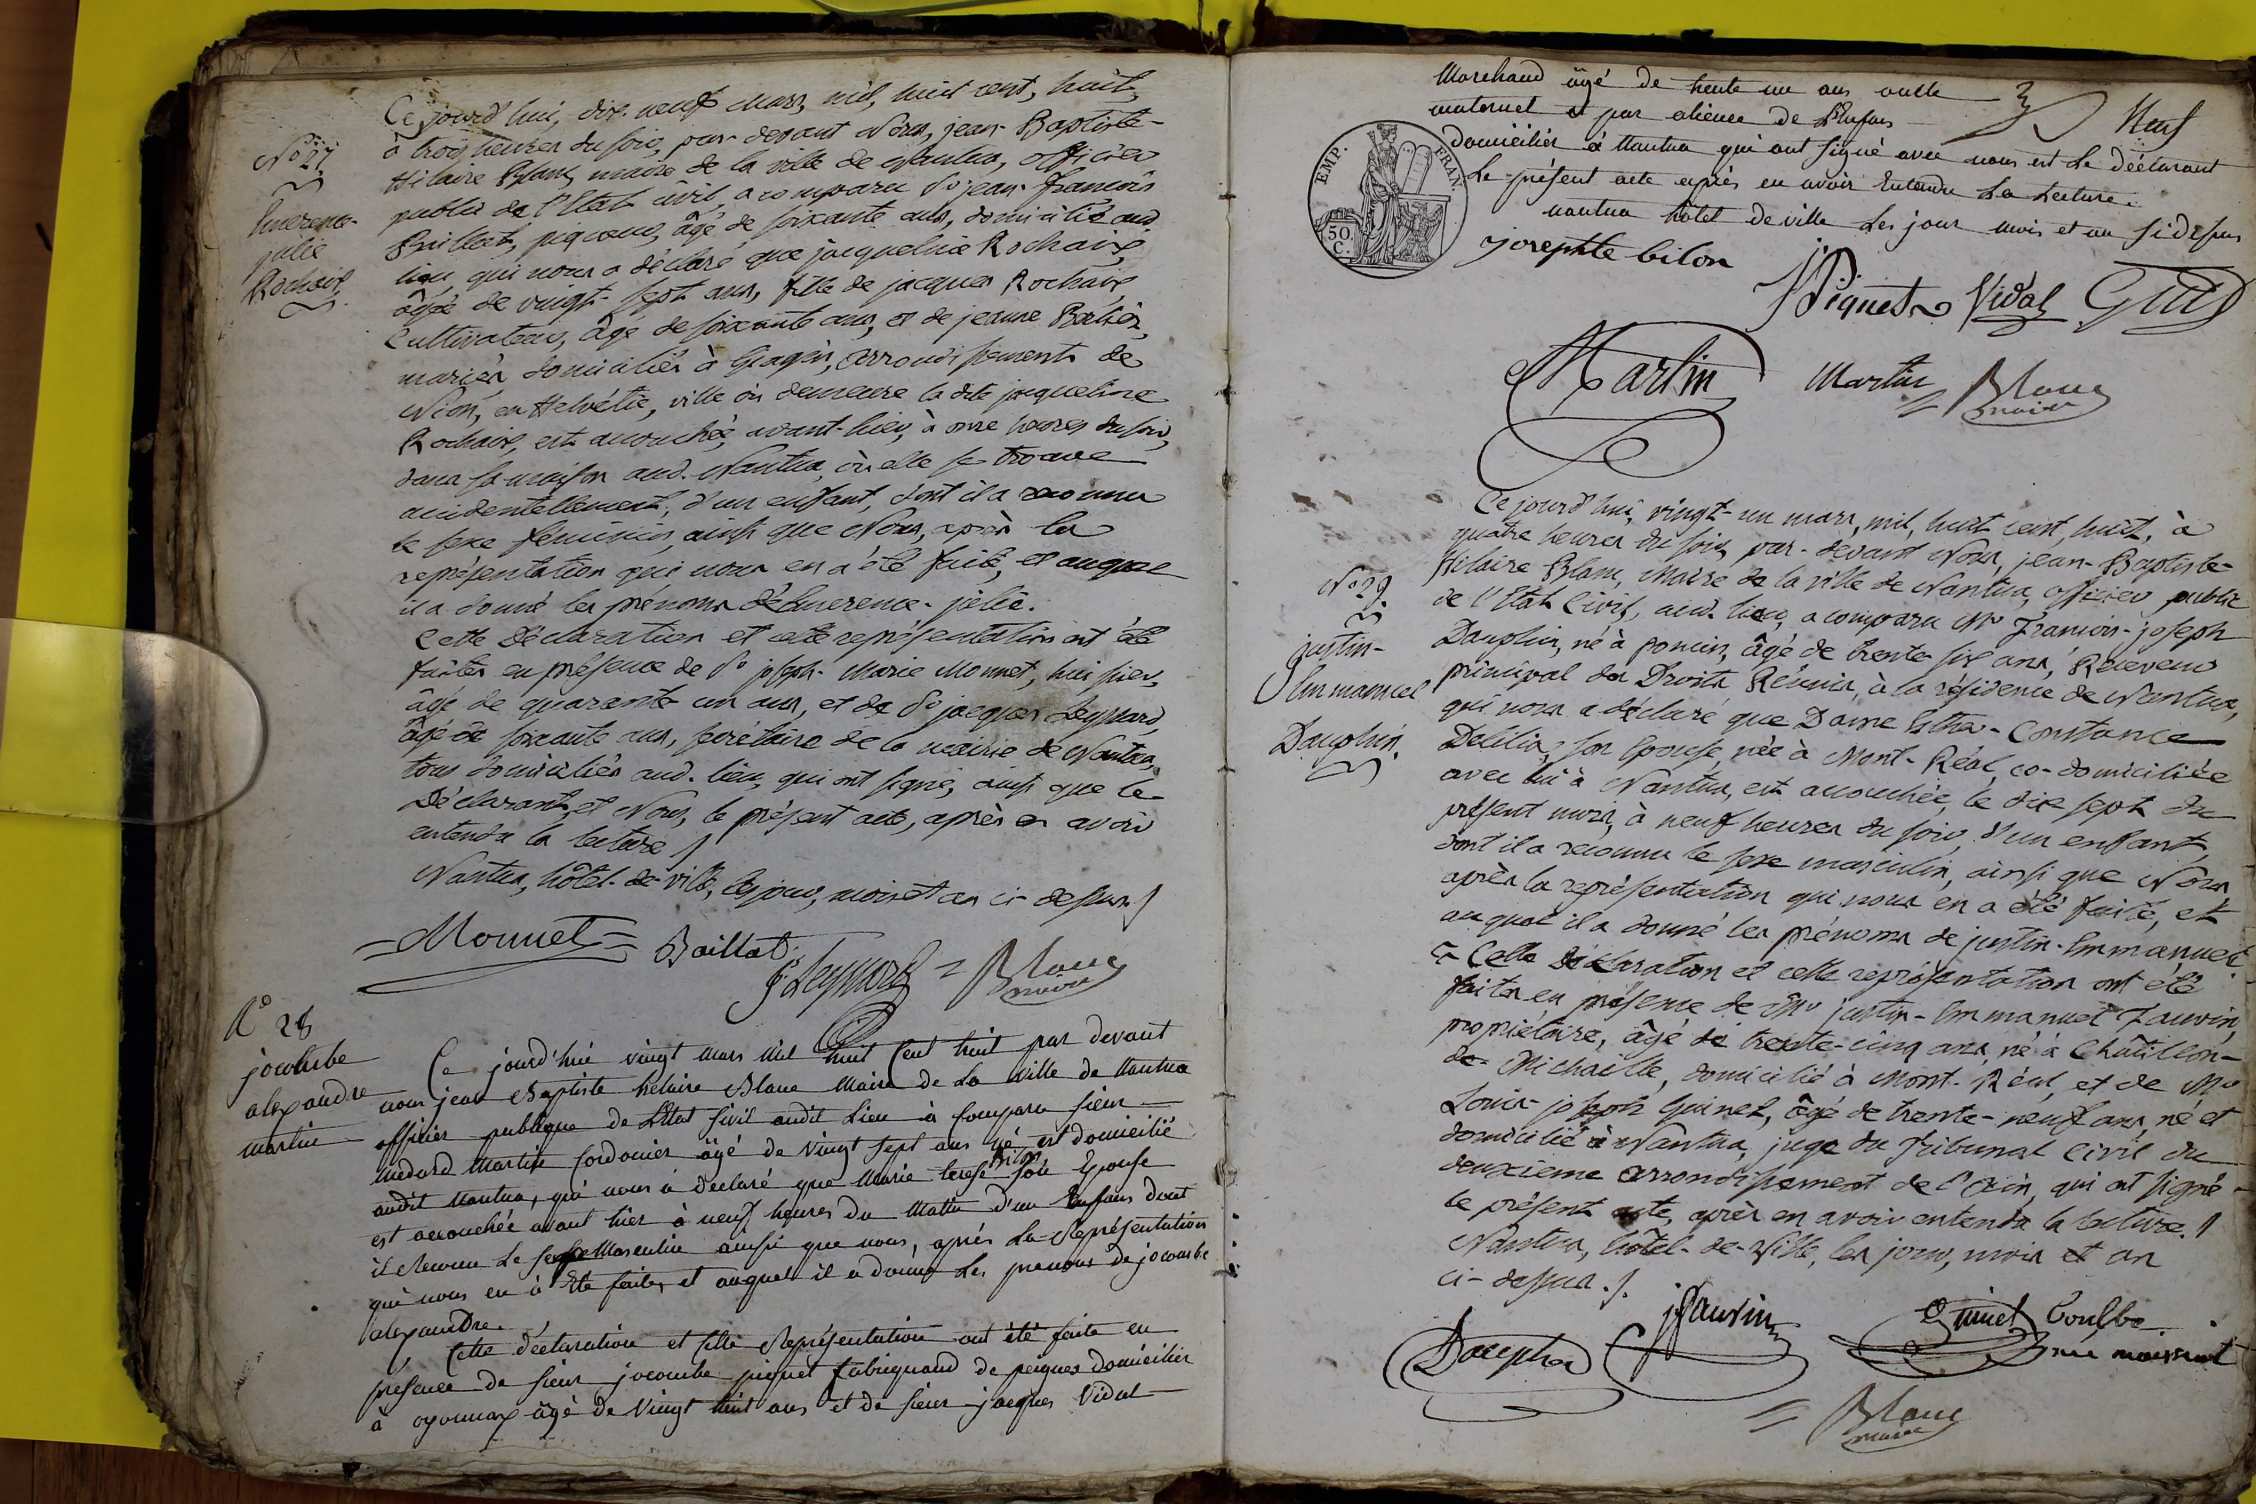 Ce jourd'hui, dix-neuf mars, mil, huit cent, huit,
à trois heures du soir, par-devant Nous, jean-Baptiste-
Hilaire Blanc, maire de la ville de Nantua, officier
public de l'Etat civil, a comparu Sr jean-françois
Baillat, âgé de soixante ans, domicilié aud.
lieu, qui nous a déclaré que jacqueline Rochaix,
âgée de vingt-sept ans, fille de jacques Rochaix,
Cultivateur, âgé de soixante ans, et de jeanne
mariés, domiciliés à arrondissement de
Nion, en Helvétie, ville où demeure la dite jacqueline
Rochaix, est accouchée, avant-hier, à onze heures du soir,
dans sa maison aud. Nantua, où elle se trouve
accidentellement, d'un enfant, dont il a reconnu
le sexe féminin, ainsi que Nous, après la
représentation qui nous en a été faite, et auquel
il a donné les prénoms d'Emerence-julie.
Cette Déclaration et cette représentation ont été
faites en présence de Sr joseph-Marie Monnet, huissier,
âgé de quarante un ans, et de Sr jacques Leyssard,
âgé de soixante ans, secrétaire de la mairie de Nantua,
tous domiciliés aud. lieu, qui ont signé, ainsi que le
Déclarant, et Nous, le présent acte, après en avoir
entendu la lecture /
Nantua, hôtel-de-ville, les jour, mois et an ci-dessus /
No 27.
Emerence-
julie
Rochaix
Monnet Baillat
J. Leyssard Blanc
maire
No 28
jocombe
alexandre
martin
Ce jourd'hui vingt mars mil huit Cent huit par devant
nous jean Baptiste helaire Blanc Maire De La Ville de Nantua
officier publique de L'Etat Sivil audit Lieu à Comparu sieur
medard Martin Cordonier âgé de Vingt sept ans né est domicilié
audit Nantua, qui nous à declaré que Marie terese bilon son Epouse
est accouchée avant hier à neuf heures Du Matin D'un Enfans dont
il Reconu Le sexe Masculin ainsi que nous, après La Représentation
qui nous en à Eté faite, et auquel il a donné Les prenoms de jocombe
alexandre.
Cette declaration et sette Représentation ont été faite en
presence de sieur jocombe piquet fabriquand de peignes domicilier
à oyonnax âgé de Vingt huit ans et de sieur jacques Vidal
Marchand âgé de trente un ans oncle
maternel et par alience de L'Enfans Neuf
domicilier à Nantua qui ont signé avec nous est Le déclarant
Le présent acte après en avoir Entendu La Lecture.
nantua hôtel de ville Les jour mois et an sidesus
EMP. FRAN.
50 C.
josephte bilon
Piquet Vidal
Martin Martin Blanc
maire
No 29.
justin-
Emmanuel
Dauphin.
Ce jourd'hui, vingt-un mars, mil, huit cent, huit, à
quatre heures du soir, par-devant Nous, jean-Baptiste-
Hilaire Blanc, Maire de la ville de Nantua, officier public
de l'Etat Civil, aud. lieu, a comparu Mr François-joseph
Dauphin, né à poncin, âgé de trente-six ans, Receveur
principal des Droits Réunis, à la résidence de Nantua,
qui nous a déclaré que Dame Esther-Constance
Delilia, son Epouse, née à Mont-Réal, co-domiciliée
avec lui à Nantua, est accouchée, le dix sept du
présent mois, à neuf heures du soir, d'un enfant,
dont il a reconnu le sexe masculin, ainsi que Nous,
après la représentation qui nous en a été faite, et
auquel il a donné les prénoms de justin-Emmanuel.
Cette Déclaration et cette représentation ont été
faites en présence de Mr justin-Emmanuel Jauvin,
propriétaire, âgé de trente-cinq ans, né à Châtillon-
de-Michaille, domicilié à Mont-Réal, et de Mr
Louis-joseph Guinet, âgé de trente-neuf ans, né et
domicilié à Nantua, juge du Tribunal Civil du
deuxieme arrondissement de l'Ain, qui ont signé
le présent acte, après en avoir entendu la lecture. /
Nantua, hôtel-de-Ville, les jour, mois et an
ci-dessus ./.
Dauphin jJauvin Guinet
Blanc
maire